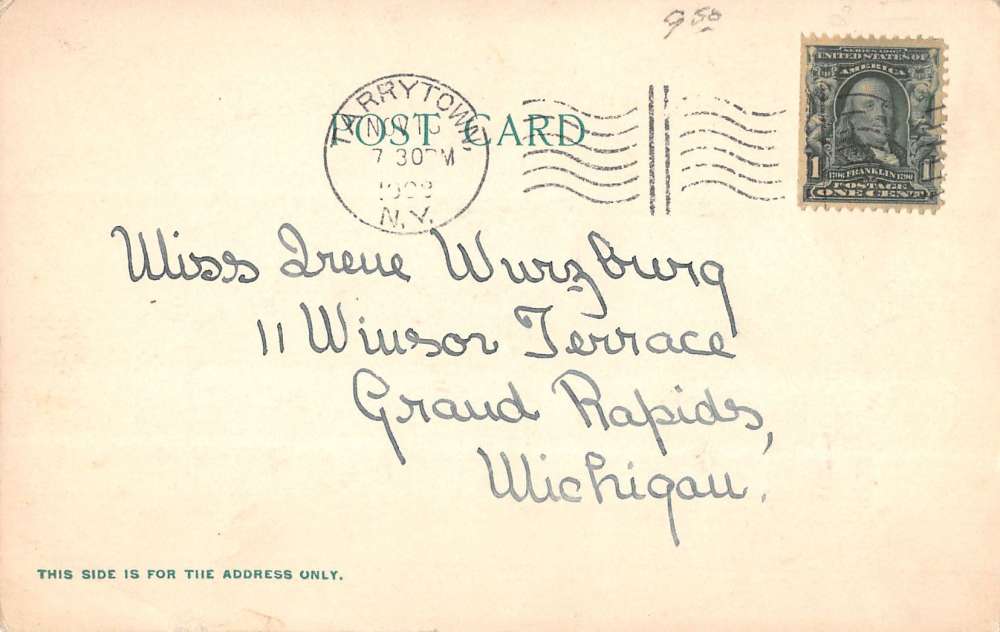 9 50
SERIES 1902
UNITED STATES OF
AMERICA
1 1
1706 FRANKLIN 1790
POSTAGE
ONE CENT
TARRYTOWN,
POST CARD
7 30 PM
N.Y.
Miss Irene Wurzburg
11 Winsor Terrace
Grand Rapids,
Michigan.
THIS SIDE IS FOR THE ADDRESS ONLY.